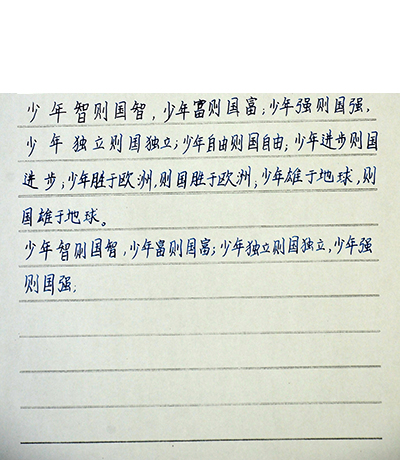 少年智则国智，少年富则国富；少年强则国强，
少年独立则国独立；少年自由则国自由；少年进步则国
进步；少年胜于欧洲，则国胜于欧洲；少年雄于地球，则
国雄于地球。
少年智则国智，少年富则国富；少年独立则国独立，少年强
则国强；